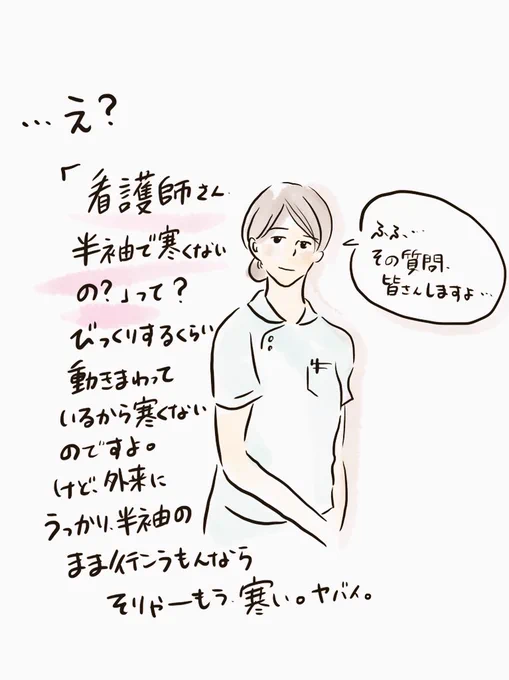 …え？
「看護師さん
半袖で寒くない
の？」って？
びっくりするくらい
動きまわって
いるから寒くない
のですよ。
けど、外来に
うっかり、半袖の
まま行こうもんなら
そりゃーもう寒い。ヤバイ。
ふふ、…
その質問、
皆さんしますよ…